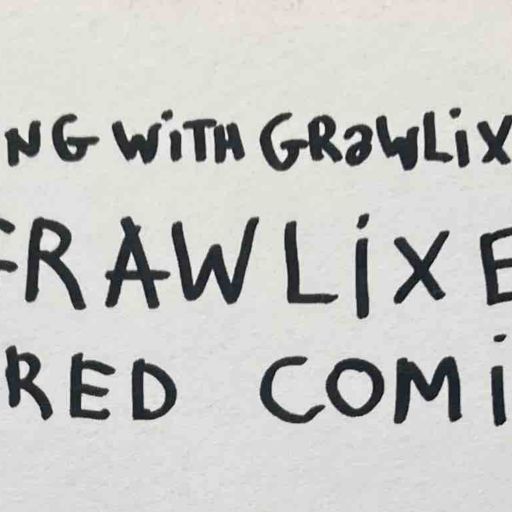 NG WiTH GRaWLiX
FRAWLiXE
RED COMi